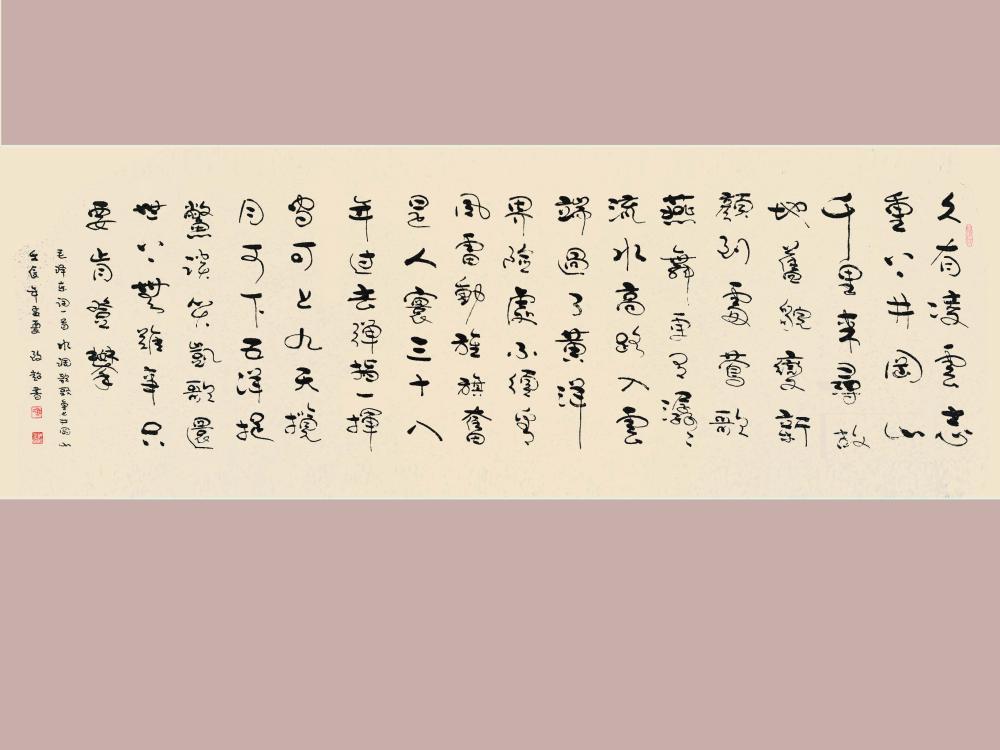 久有凌雲志
重上井岡山
千里來尋故
地舊貌變新
顏到處鶯歌
燕舞更有潺々
流水高路入雲
端過了黃洋
界險處不須看
風雷動旌旗奮
是人寰三十八
年过去彈指一揮
間可上九天攬
月可下五洋捉
鱉談笑凱歌還
世上無難事只
要肯登攀
毛泽东词一首水调歌头重上井岡山
壬辰年孟夏 書